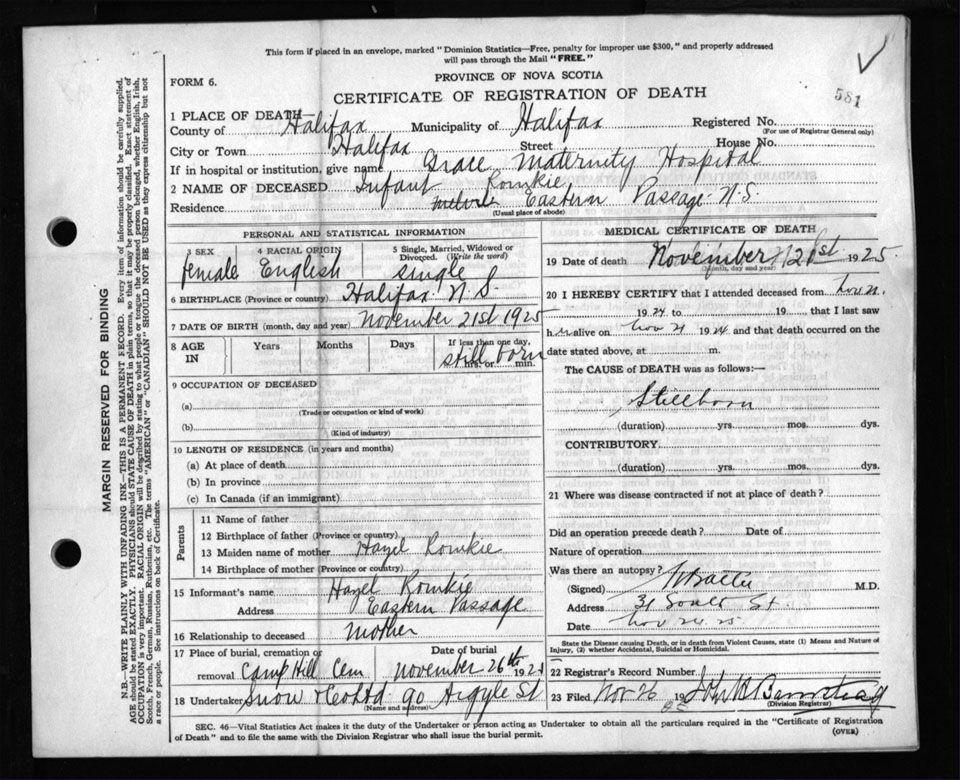 This form if placed in an envelope, marked "Dominion Statistics—Free, penalty for improper use $300," and properly addressed
will pass through the Mail "FREE."
FORM 6.
PROVINCE OF NOVA SCOTIA
CERTIFICATE OF REGISTRATION OF DEATH
581
1 PLACE OF DEATH—
County of Halifax Municipality of Halifax Registered No.
(For use of Registrar General only)
City or Town Halifax Street House No.
If in hospital or institution, give name Grace Maternity Hospital
2 NAME OF DECEASED Infant Romkie
Residence Eastern Passage N.S.
(Usual place of abode)
PERSONAL AND STATISTICAL INFORMATION
3 SEX 4 RACIAL ORIGIN 5 Single, Married, Widowed or Divorced (Write the word)
female English single
6 BIRTHPLACE (Province or country) Halifax N S.
7 DATE OF BIRTH (month, day and year) November 21st 1925
8 AGE IN Years Months Days If less than one day, hrs. or min.
still born
9 OCCUPATION OF DECEASED
(a)
(Trade or occupation or kind of work)
(b)
(Kind of industry)
10 LENGTH OF RESIDENCE (in years and months)
(a) At place of death
(b) In province
(c) In Canada (if an immigrant)
Parents
11 Name of father
12 Birthplace of father (Province or country)
13 Maiden name of mother Hazel Romkie
14 Birthplace of mother (Province or country)
15 Informant's name Hazel Romkie
Address Eastern Passage
16 Relationship to deceased mother
17 Place of burial, cremation or removal Camp Hill Cem Date of burial November 26th 192
18 Undertaker Snow & Co Ltd 90 Argyle St
(Name and address)
MEDICAL CERTIFICATE OF DEATH
19 Date of death November 21st 1925
(Month, day and year)
20 I HEREBY CERTIFY that I attended deceased from Nov 21
1924 to 19 that I last saw
h er alive on Nov 21 1924 and that death occurred on the
date stated above, at m.
The CAUSE of DEATH was as follows:—
Stillborn
(duration) yrs. mos. dys.
CONTRIBUTORY
(duration) yrs. mos. dys.
21 Where was disease contracted if not at place of death?
Did an operation precede death? Date of
Nature of operation
Was there an autopsy?
(Signed) M.D.
Address 31 South St.
Date Nov 24 25
State the Disease causing Death, or in death from Violent Causes, state (1) Means and Nature of
Injury, (2) whether Accidental, Suicidal or Homicidal.
22 Registrar's Record Number
23 Filed Nov 26 19
(Division Registrar)
SEC. 46—Vital Statistics Act makes it the duty of the Undertaker or person acting as Undertaker to obtain all the particulars required in the "Certificate of Registration
of Death" and to file the same with the Division Registrar who shall issue the burial permit.
(OVER)
MARGIN RESERVED FOR BINDING
N.B.—WRITE PLAINLY WITH UNFADING INK—THIS IS A PERMANENT RECORD. Every item of information should be carefully supplied.
AGE should be stated EXACTLY. PHYSICIANS should STATE CAUSE OF DEATH in plain terms, so that it may be properly classified. Exact statement of
OCCUPATION is very important. RACIAL ORIGIN will be described by stating to what people or tongue the deceased person belonged, whether English, Irish,
Scotch, French, German, Russian, Ruthenian, etc. The terms "AMERICAN" or "CANADIAN" SHOULD NOT BE USED as they express citizenship but not
a race or people. See instructions on back of Certificate.